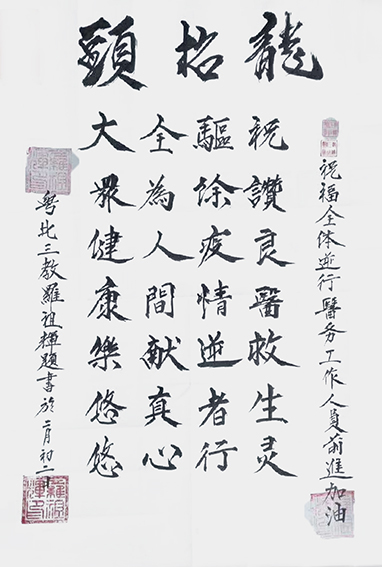 龍抬頭
祝福全体逆行醫务工作人員前進加油
祝讚良醫救生灵
驅除疫情逆者行
全為人間献真心
大眾健康樂悠悠
粤北三教羅祖輝題書於二月初二日